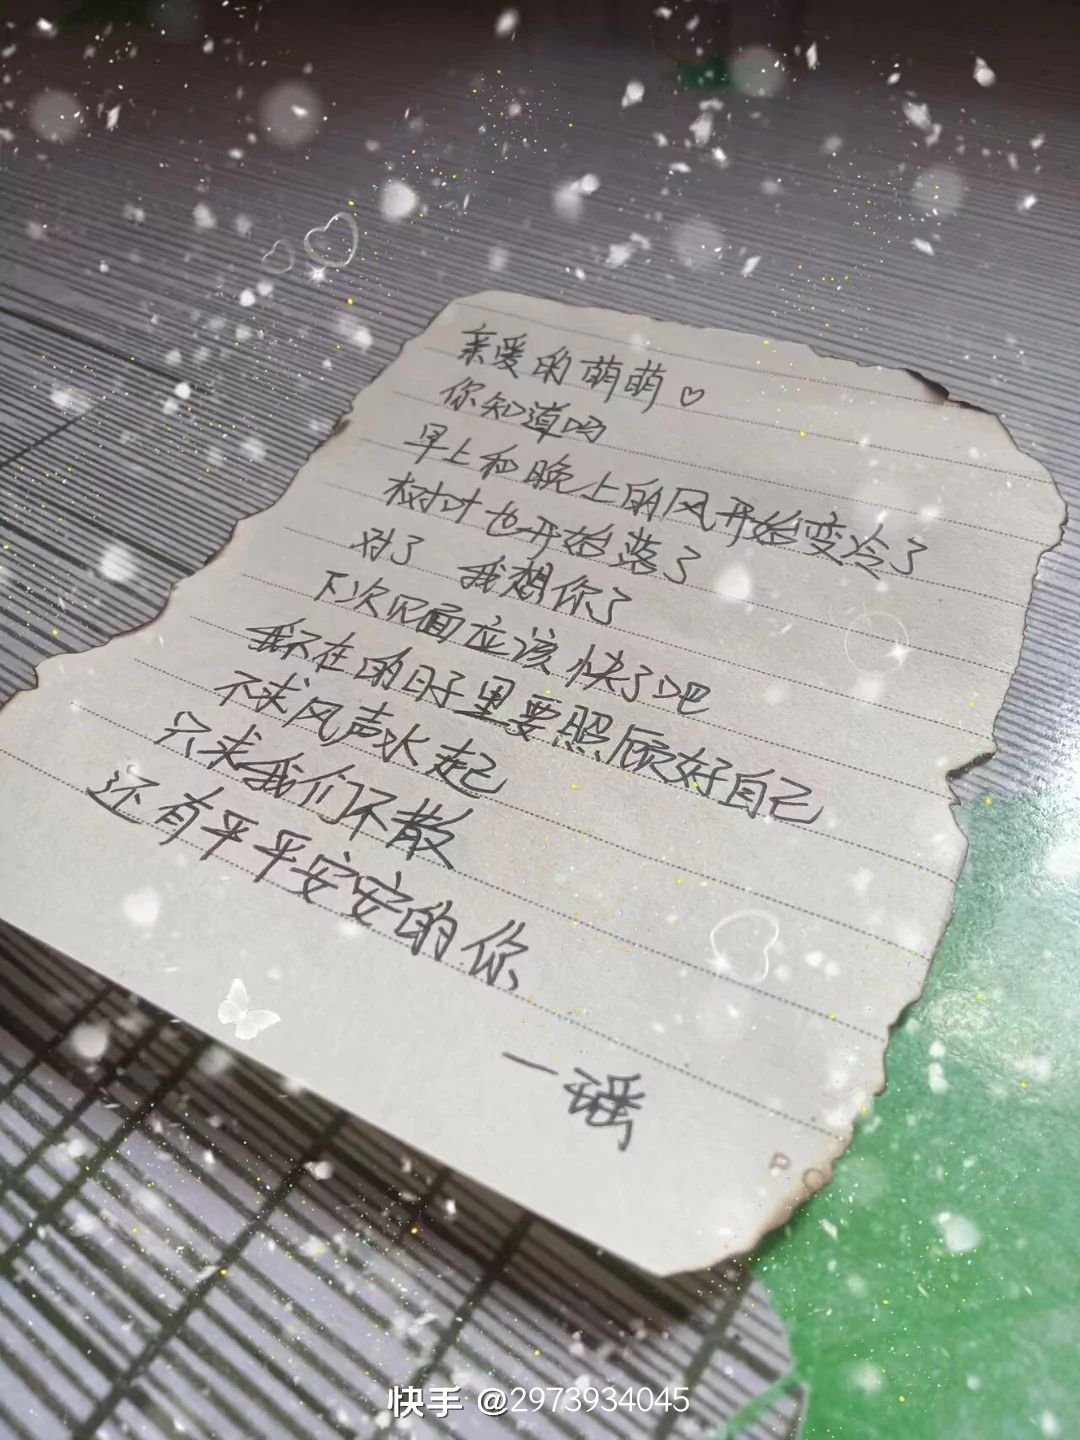 亲爱的萌萌♡
你知道吗
早上和晚上的风开始变冷了
树叶也开始落了
对了 我想你了
下次见面应该快了吧
我不在的日子里要照顾好自己
不求风声水起
只求我们不散
还有平平安安的你
一瑶
PO
快手 @2973934045